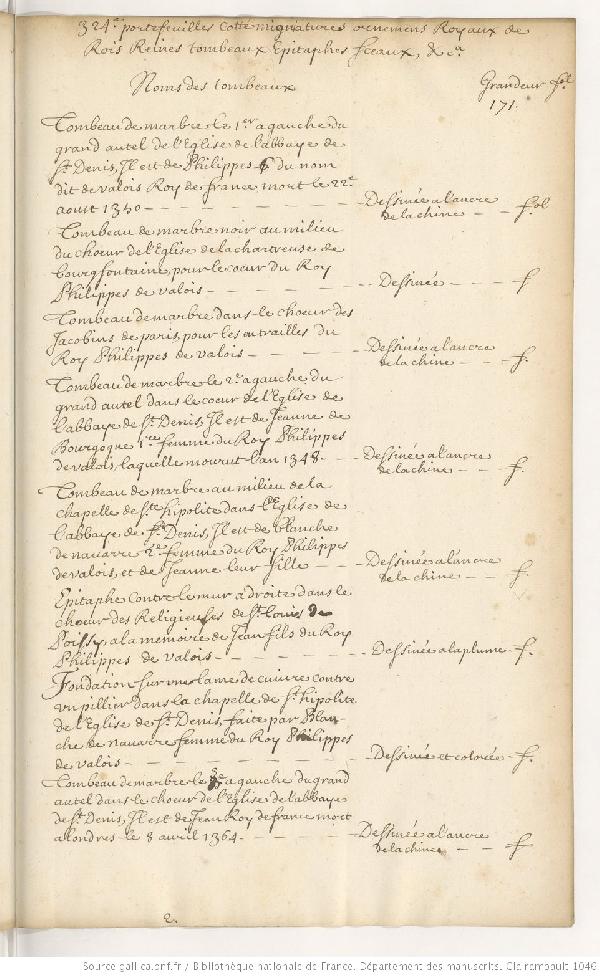 324e portefeuilles cotté mignatures ornemens Royaux de
Rois Reines tombeaux Epitaphes sceaux, &ca
Noms des tombeaux
Grandeur fol.
171.
Tombeau de marbre le 1er a gauche du
grand autel de l'Eglise de l'abbaye de
St. Denis, Il est de Philippes 6 du nom
dit de valois Roy de france mort le 22e
aoust 1350 - - - Dessinée a l'ancre de la chine - - fol
Tombeau de marbre noir au milieu
du choeur de l'Eglise de la chartreuse de
bourgfontaine, pour le coeur du Roy
Philippes de valois - - - Dessinée - - - f
Tombeau de marbre dans le choeur des
Jacobins de paris, pour les entrailles du
Roy Philippes de valois - - - Dessinée a l'ancre de la chine - - f.
Tombeau de marbre le 2e a gauche du
grand autel dans le coeur de l'Eglise de
l'abbaye de St. Denis, Il est de Jeanne de
Bourgogne 1re femme du Roy Philippes
de valois, laquelle mourut l'an 1348 - - Dessinée a l'ancre de la chine - - f.
Tombeau de marbre au milieu de la
chapelle de Ste hipolite dans l'Eglise de
l'abbaye de St. Denis, Il est de blanche
de navarre 2e femme du Roy Philippes
de valois, et de Jeanne leur fille - - - Dessinée a l'ancre de la chine - - f.
Epitaphe contre le mur a droite dans le
choeur des Religieuses de St. louis de
Poissy, a la memoire de Jean fils du Roy
Philippes de valois - - - Dessinée a la plume - f.
Fondation sur une lame de cuivre contre
un pillier dans la chapelle de St. hipolite
de l'Eglise de St. Denis, faite par Blan-
che de navarre femme du Roy Philippes
de valois - - - Dessinée et colorée - f.
Tombeau de marbre le 3e a gauche du grand
autel dans le choeur de l'Eglise de l'abbaye
de St. Denis, Il est de Jean Roy de france mort
a londres le 8 avril 1364 - - - Dessinée a l'ancre de la chine - f.
2.
Source gallica.bnf.fr / Bibliothèque nationale de France. Département des manuscrits. Clairambault 1046